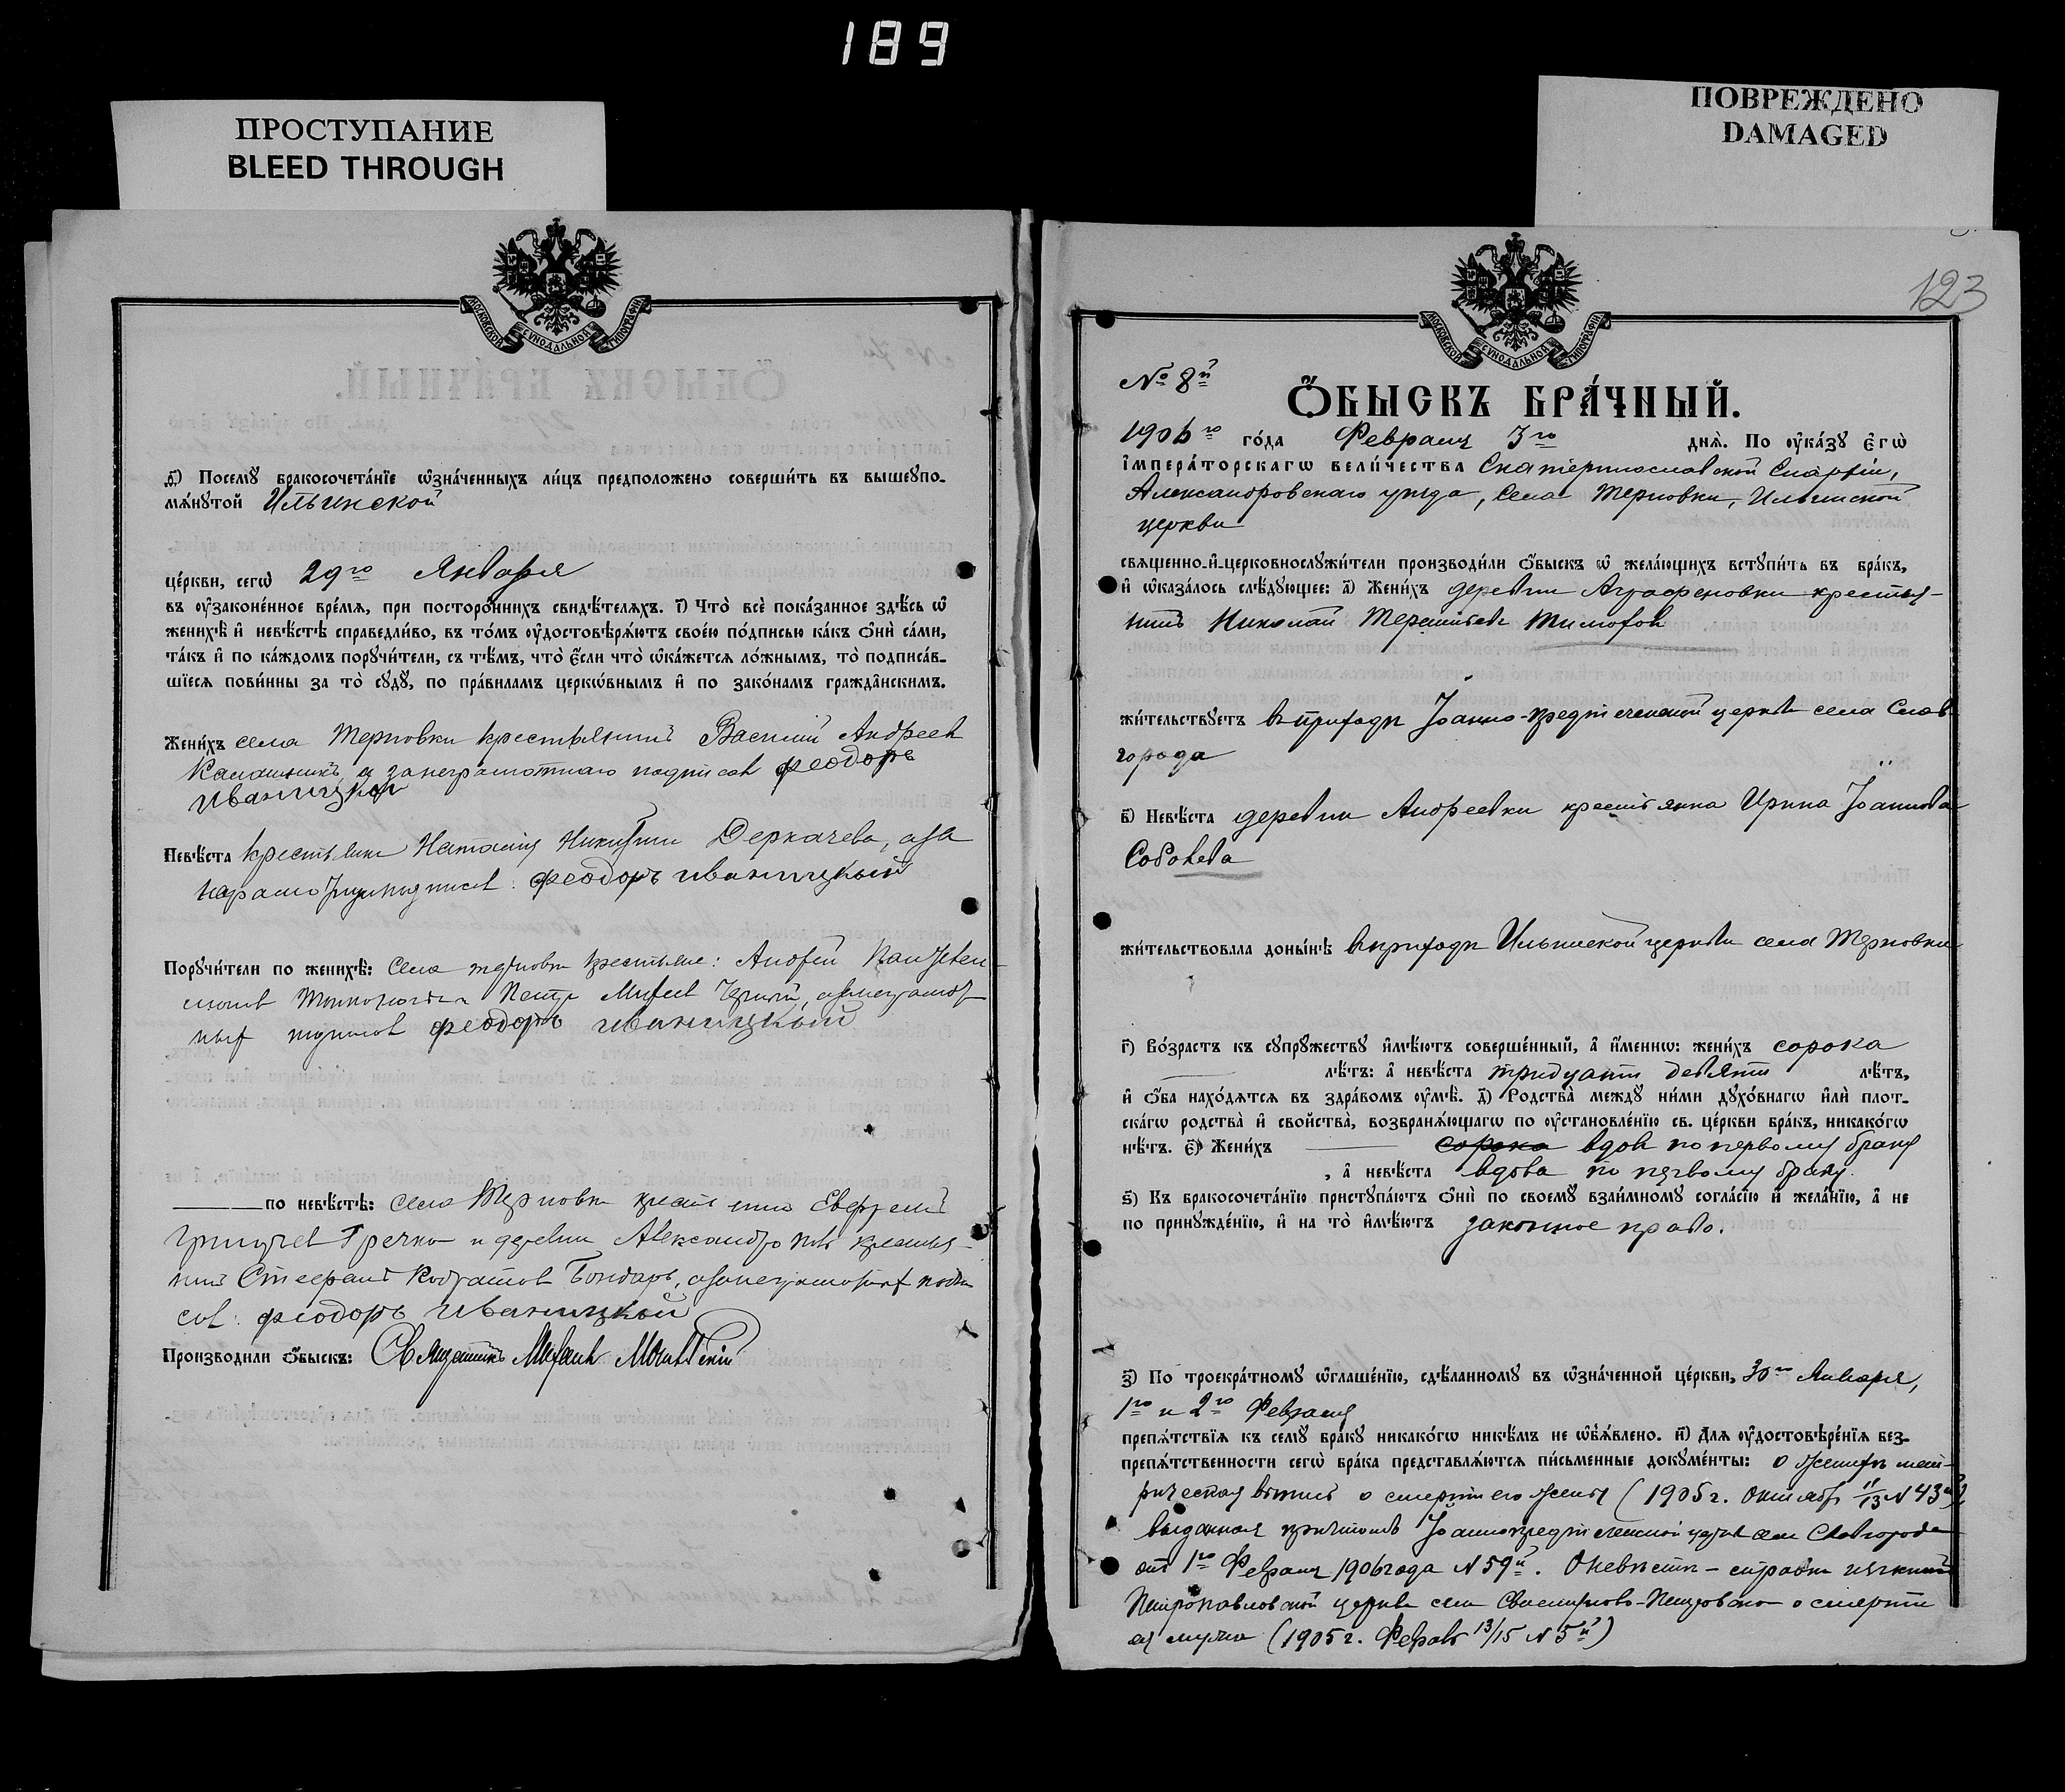 189
ПРОСТУПАНИЕ
BLEED THROUGH
ПОВРЕЖДЕНО
DAMAGED
МОСКОВСКОЙ СѴНОДАЛЬНОЙ ТИПОГРАФІИ
д҃) Посемꙋ бракосочета́нїе ѡ҆зна́ченныхъ ли́цъ предположено соверши́ть въ вышеꙋпо-
мѧ́нꙋтой Ильинской
це́ркви, сегѡ̀ 29го Января
въ ᲂу҆законе́нное вре́мѧ, при посторо́ннихъ свидѣ́телѧхъ. і҃) Что̀ всѐ пока́занное здѣ́сь ѡ҆
женихѣ̀ и҆ невѣ́стѣ справедли́во, въ то́мъ ᲂу҆достовѣрѧ́ютъ свое́ю по́дписью ка́къ ѻ҆нѝ са́ми,
та́къ и҆ по ка́ждомъ порꙋчи́тели, съ тѣ́мъ, что̀ є҆́сли что̀ ѡ҆ка́жетсѧ ло́жнымъ, то̀ подписа́в-
шїесѧ пови́нны за то̀ сꙋдꙋ̀, по пра́виламъ церкѡ́внымъ и҆ по зако́намъ гражда̂нскимъ.
Жени́хъ села Терновки крестьянинъ Василий Андреев
Калашникъ, а за неграмотнаго подписал Феодоръ
Иваницкій
Невѣ́ста крестьянка Наталія Никитина Деркачева, а за
Феодоръ Иваницкый
Порꙋчи́тели по женихѣ̀: Села Терновки крестьяне:
Петр Черный,
Феодоръ Иваницкый
по невѣ́стѣ: села Терновки
Гречка и деревни Александровки крестья-
нинъ Стефанъ Бондарь,
Феодоръ Иваницкый
Производили ѻ҆́быскъ: Священникъ Михаил
123
МОСКОВСКОЙ СѴНОДАЛЬНОЙ ТИПОГРАФІИ
№ 8й
Ѻ҆́БЫСКЪ БРА́ЧНЫЙ.
1906го го́да Февраля 3го днѧ̀. По ᲂу҆ка́зꙋ є҆гѡ̀
і҆мпера́торскагѡ вели́чества Екатеринославской Епархіи,
Александровскаго уѣзда, села Терновки, Ильинской
церкви
свѧщенно-и҆-церковнослꙋжи́тели производи́ли ѻ҆́быскъ ѡ҆ жела́ющихъ встꙋпи́ть въ бра́къ,
и҆ ѡ҆каза́лось слѣ́дꙋющее: а҃) Жени́хъ деревни Аграфеновки крестья-
нинъ Николай Терентьев Тимофей
жи́тельствꙋетъ въ приходѣ Іоанно-Предтеченской церкви села Слав
города
в҃) Невѣ́ста деревни Андреевки крестьянка Ирина Іоаннова
Соболева
жи́тельствовала доны́нѣ въ приходѣ Ильинской церкви села Терновки
г҃) Во́зрастъ къ сꙋпрꙋ́жествꙋ и҆мѣ́ютъ соверше́нный, а҆ и҆́меннѡ: жени́хъ сорока
лѣ́тъ: а҆ невѣ́ста тридцати девяти лѣ́тъ,
и҆ ѻ҆́ба нахо́дѧтсѧ въ здра́вомъ ᲂу҆мѣ̀. д҃) Родства̀ междꙋ ни́ми дꙋхо́внагѡ и҆лѝ плот-
ска́гѡ родства̀ и҆ свойства̀, возбранѧ́ющагѡ по ᲂу҆становле́нїю св. це́ркви бра́къ, никако́гѡ
нѣ́тъ. є҃) Жени́хъ сорока вдов по первому браку
, а҆ невѣ́ста вдова по первому браку.
ѕ҃) Къ бракосочета́нїю пристꙋпа́ютъ ѻ҆нѝ по своемꙋ̀ взаи́мномꙋ согла́сїю и҆ жела́нїю, а҆ не
по принꙋжде́нїю, и҆ на то̀ и҆мѣ́ютъ законное право.
з҃) По троекра́тномꙋ ѡ҆глаше́нїю, сдѣ́ланномꙋ въ ѡ҆зна́ченной це́ркви, 30го Января,
1го и 2го Февраля
препѧ́тствїѧ къ семꙋ̀ бра́кꙋ никако́гѡ никѣ́мъ не ѡ҆б̾ѧ́влено. и҃) Длѧ ᲂу҆достовѣре́нїѧ без-
препѧ́тственности сегѡ̀ бра́ка представлѧ́ютсѧ пи́сьменные докꙋме́нты: о женихѣ мет-
рическая выпись о смерти его жены (1905 г. Октябр 11/13 N 43й)
выданная причтомъ Іоанно-Предтеченской церкви села Славгорода
отъ 1го Февраля 1906 года N 59й. О невѣстѣ – справка
Петропавловской церкви села о смерти
ея мужа (1905 г. Февраль 13/15 N 5й)